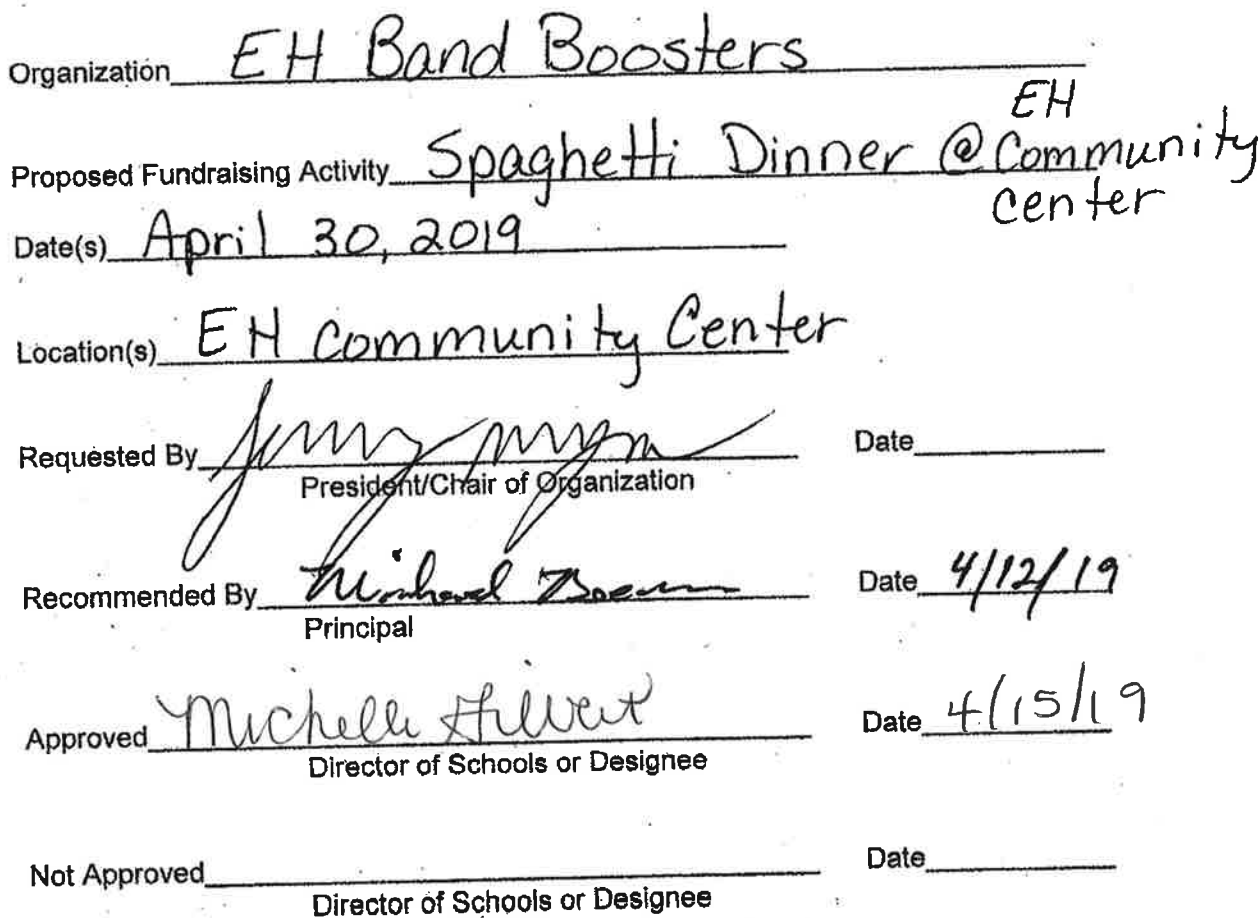 Organization EH Band Boosters
EH
Proposed Fundraising Activity Spaghetti Dinner @ Community
center
Date(s) April 30, 2019
Location(s) EH Community Center
Requested By Date
President/Chair of Organization
Recommended By Michael Date 4/12/19
Principal
Approved Michelle Gilbert Date 4/15/19
Director of Schools or Designee
Not Approved Date
Director of Schools or Designee